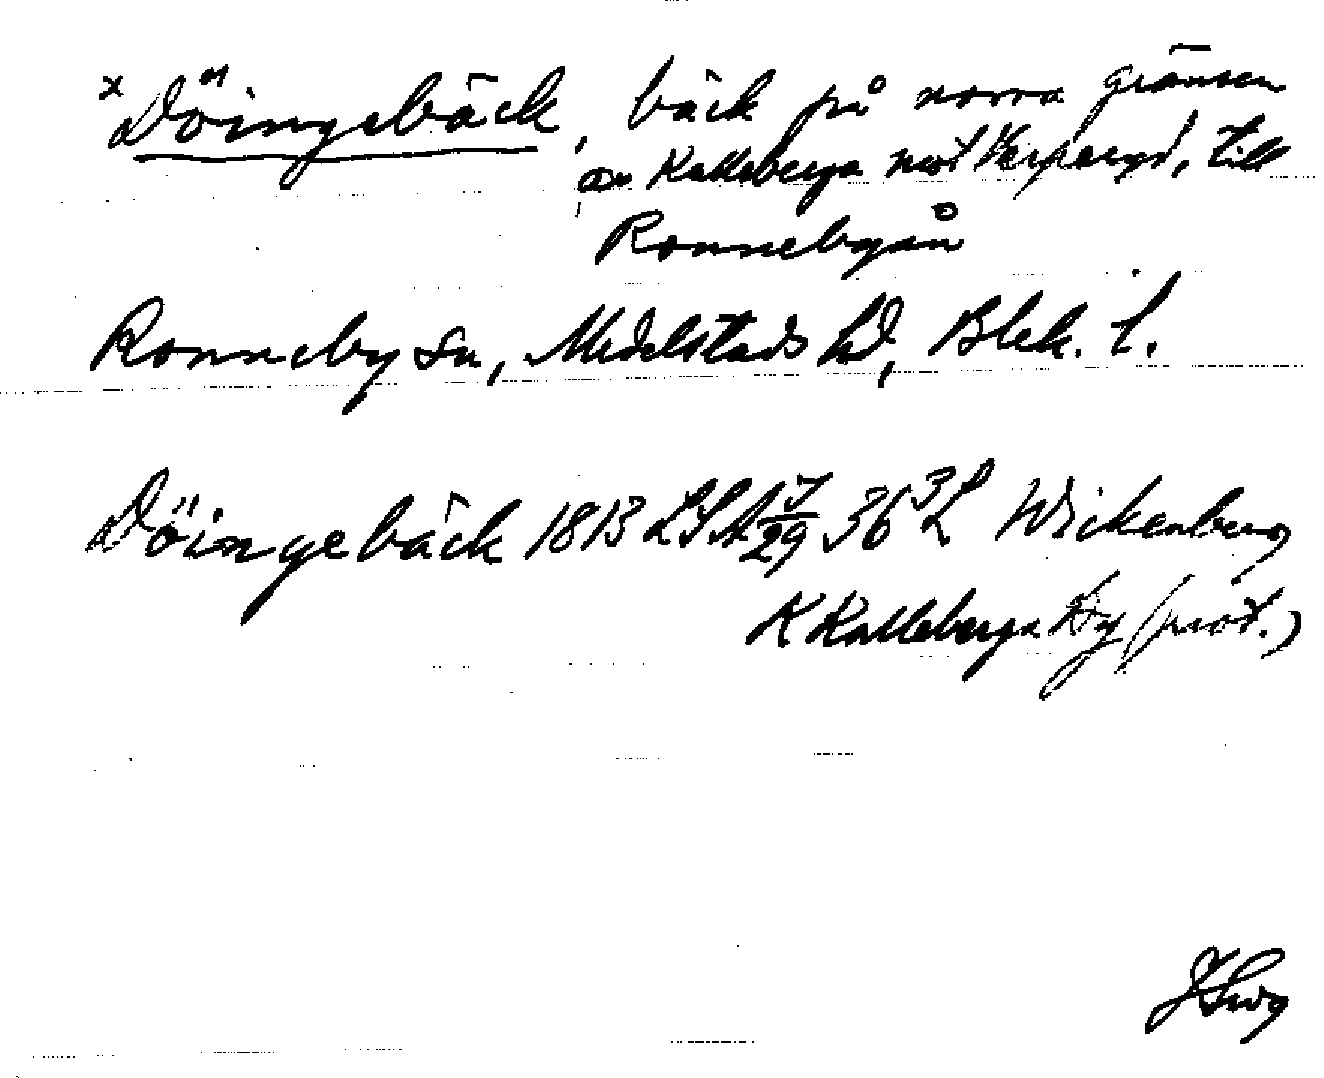 x Döingebäck, bäck på norra gränsen
av Kalleberga mot Herperyd, till
Ronnebyån
Ronneby sn, Medelstads hd, Blek. l.
Döingebäck 1813 LSA J/29 36³L Wickenberg
K Kalleberga by (prot.)